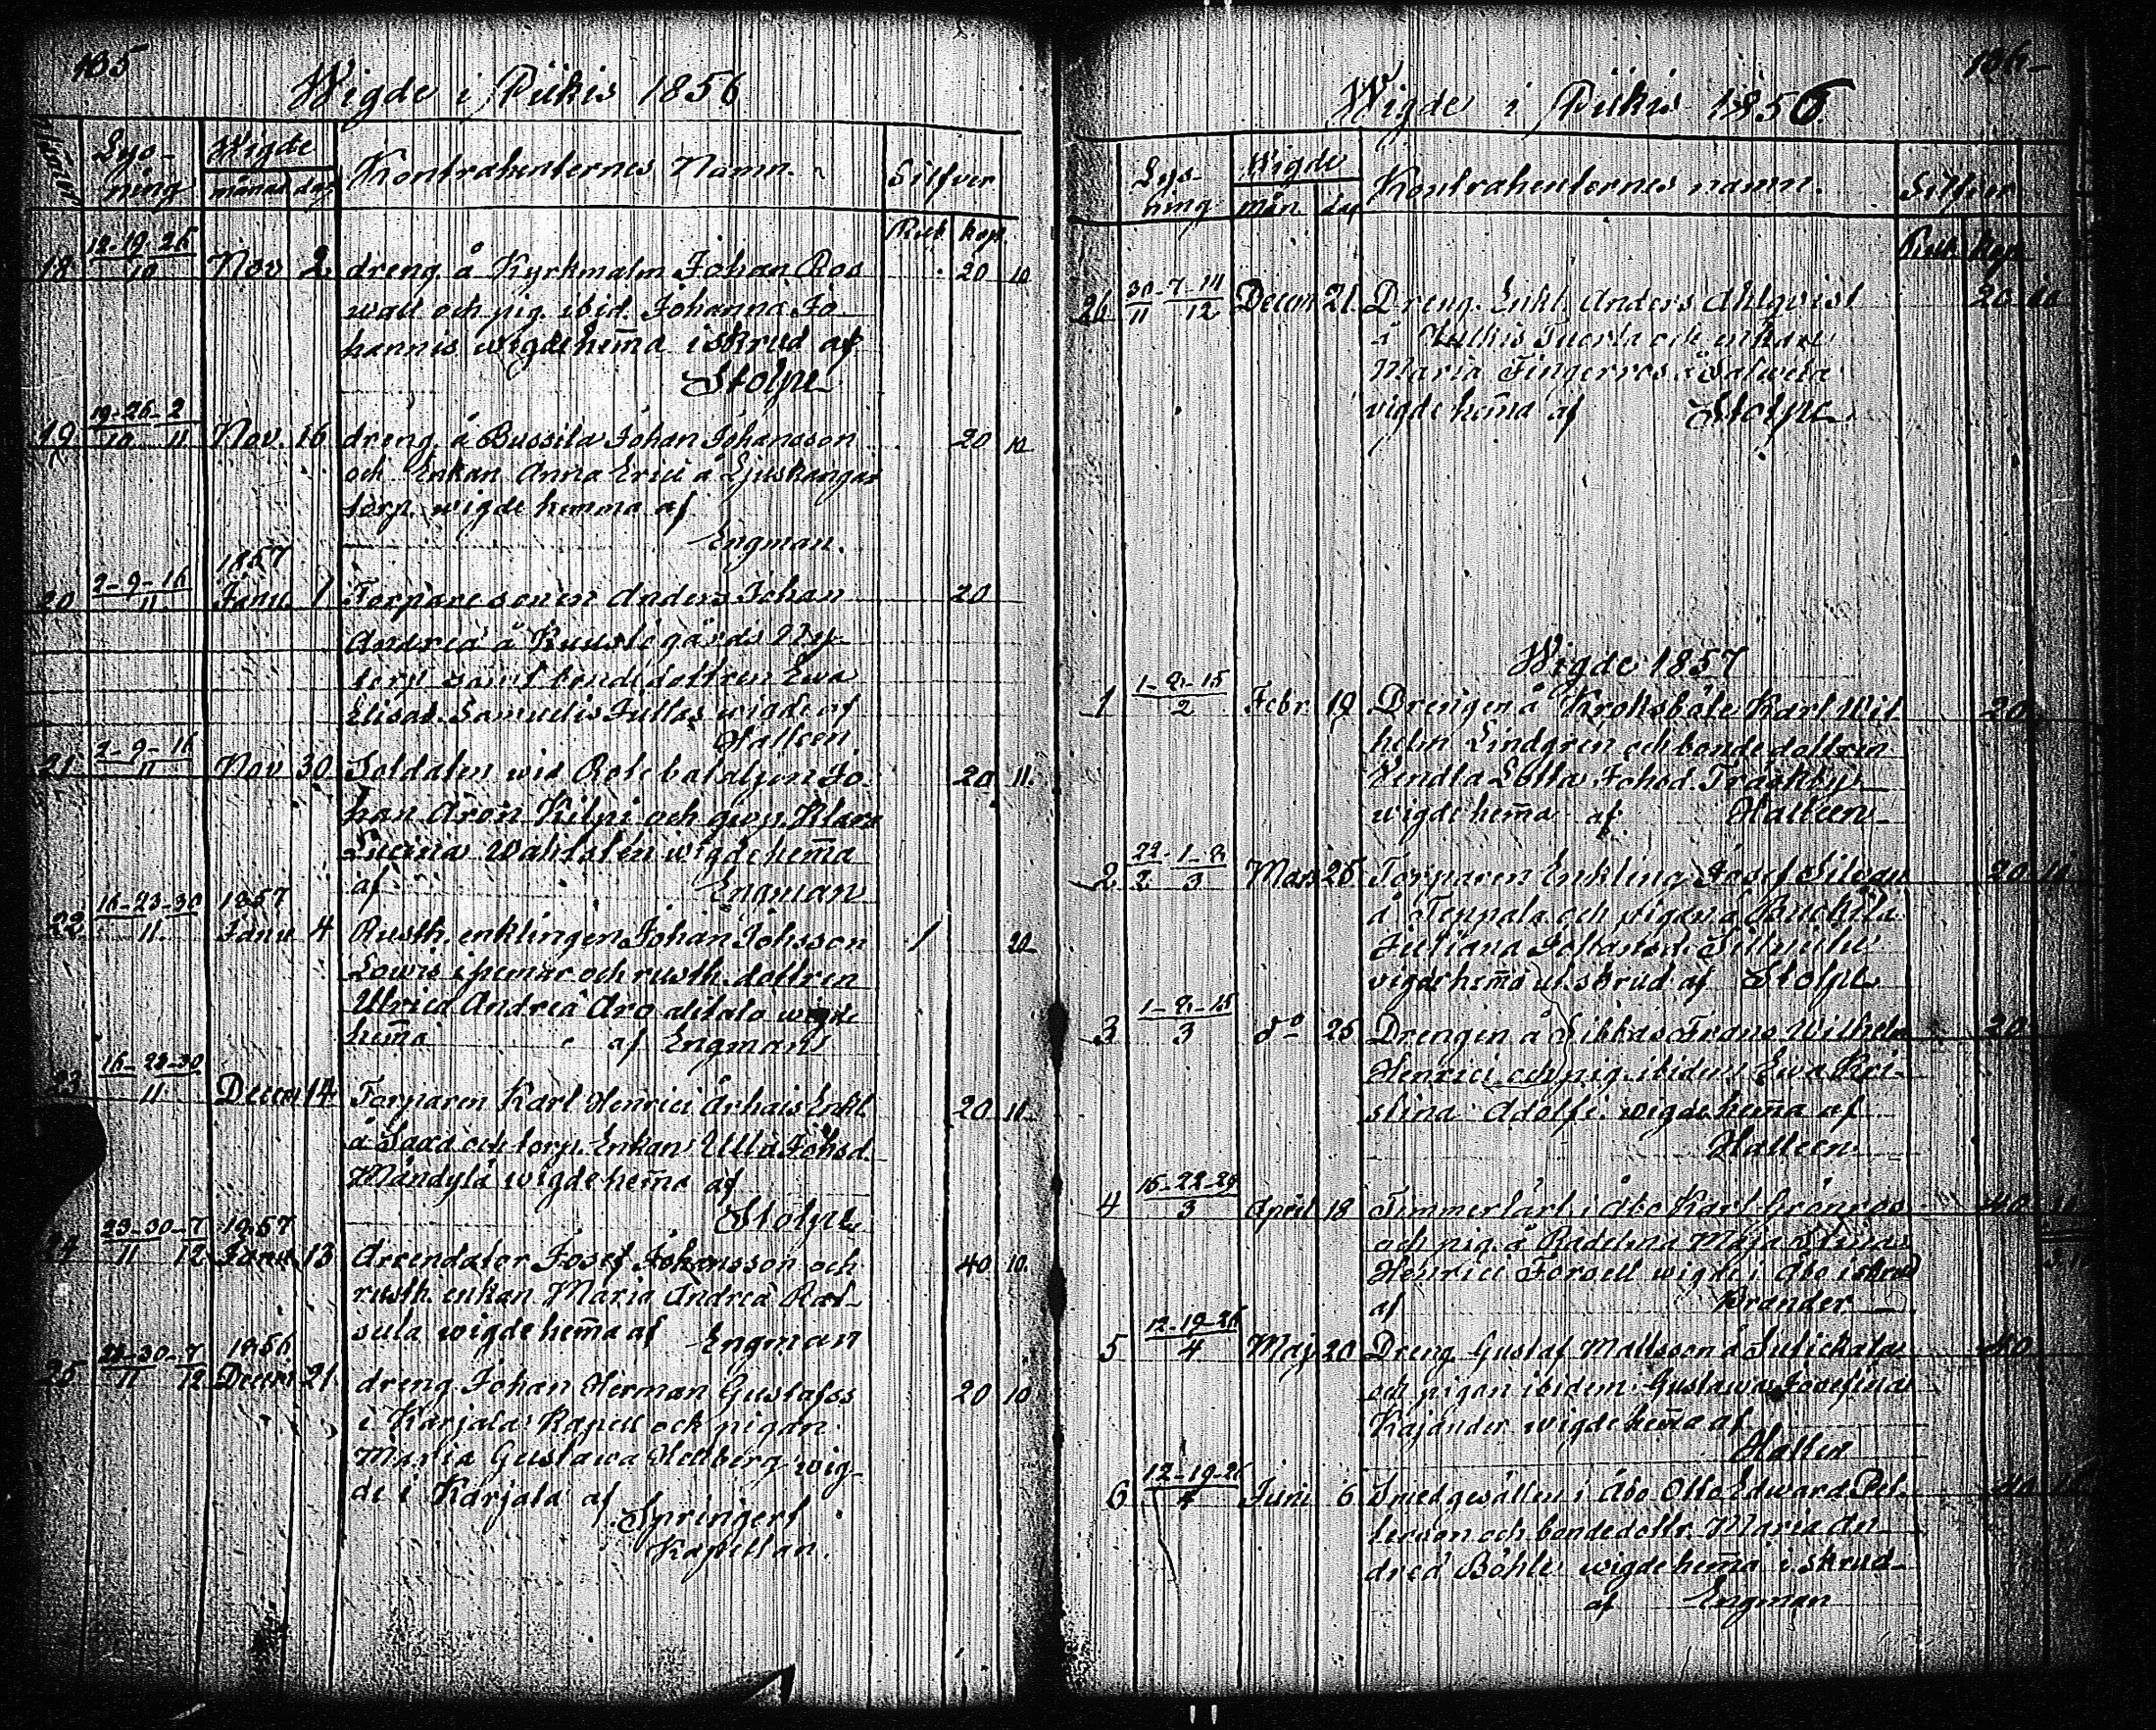 135
Wigde i Piikis 1856
Lys-
ning
Wigde
månad dag
Kontrahenternes Namn.
Silfver
Rub. kop.
18 12-19-26/10 Nov 2 dreng å Kyrkmalm Johan Ros 20 10
wall och pig. ibid. Johanna Jo-
hannis wigde hem̄a i skrud af
Stolpe
19 19-26-2/10 11 Nov. 16 dreng. å Bussila Johan Johansson 20 10
och Enkan Anna Erici å Ljuskangas
torp. wigde hemma af
Engman.
1857
20 2-9-16/11 Janu. 1 Torparesonen Anders Johan 20
Andreä å Kuustö gårds Ny-
torp samt bondedottren Ewa
Elisab. Samuelis Jullas wigde af
Halleen
21 2-9-16/11 Nov 30 Soldaten wid Rotebataljon Jo- 20 11.
han Aron Kilpi och qwp. Klara
Lucina Wahlstén wigde hem̄a
af Engman
1857
22 16-23-30/11. Janu 4 Rusth. enklingen Johan Johsson 1 20
Lowis i pemar och rusth. dottren
Ulrica Andreä Aro alitalo wigde
hem̄a af Engman
23 16-23-30/11 Decem 14 Torparen Karl Henrici Århais Enkl. 20 11
å Saxa och torp. Enkan Ulla Johsd.
Mändylä wigde hem̄a af
Stolpe
1857
24 23-30-7/11 12 Janu. 13 Arrendator Josef Johansson och 40 10.
rusth. enkan Maria Andreä Rat-
sula wigde hem̄a af Engman
1856
25 23-30-7/11 12 Decem 21. dreng Johan Herman Gustafss 20 10
i Karjala Kapell och pigan
Maria Gustawa Hedberg wig-
de i Karjala af
Springert
Kapellan.
136
Wigde i Piikis 1856
Lys-
ning
Wigde
mån. dag
Kontrahenternes namn.
Silfver
Rub. kop.
26 30-7-14/11 12 Decem 21. Dreng. Enkl. Anders Ahlqvist 20 10
å Tuorla och enkan
Maria Fingerroos å Salwela
vigde hem̄a af Stolpe
Wigde 1857
1 1-8-15/2 Febr. 19 Drengen å Kroksböle Karl Wil- 20
helm Lindgren och bondedottren
Wendla Lotta Johsd. Träskby
wigde hem̄a af Halleen
2 22-1-8/2 3 Mars 25 Torparen Enkling Josef Silvan 20 11
å Teppala och pigan å Buckila
Juliana Johansd.
vigde hem̄a ut. skrud af Stolpe
3 1-8-15/3 do 25 Drengen å Sikkas Frans Wilhelm 20
Henrici och pig. ibidem Ewa Kri-
stina Adolfi wigde hem̄a af
Halleen
4 15-22-29/3 April 18 Timmerkarl i Åbo Karl Grönroos 40 11
och pig. å Radelma Maja Stina
Henrici Forsell wigde i Åbo i skrud
af Brander
5 12-19-26/4 Maj 20 Dreng Gustaf Mattsson å 40
och pigan ibidem Gustawa Josefina
Kajander wigde hem̄a af
Hallen
6 12-19-26/4 Juni 6 Smedgesällen i Åbo Otto Edward Pet- 40
terson och bondedottr. Maria An-
dreä Böhle wigde hem̄a i skrud
af Engman